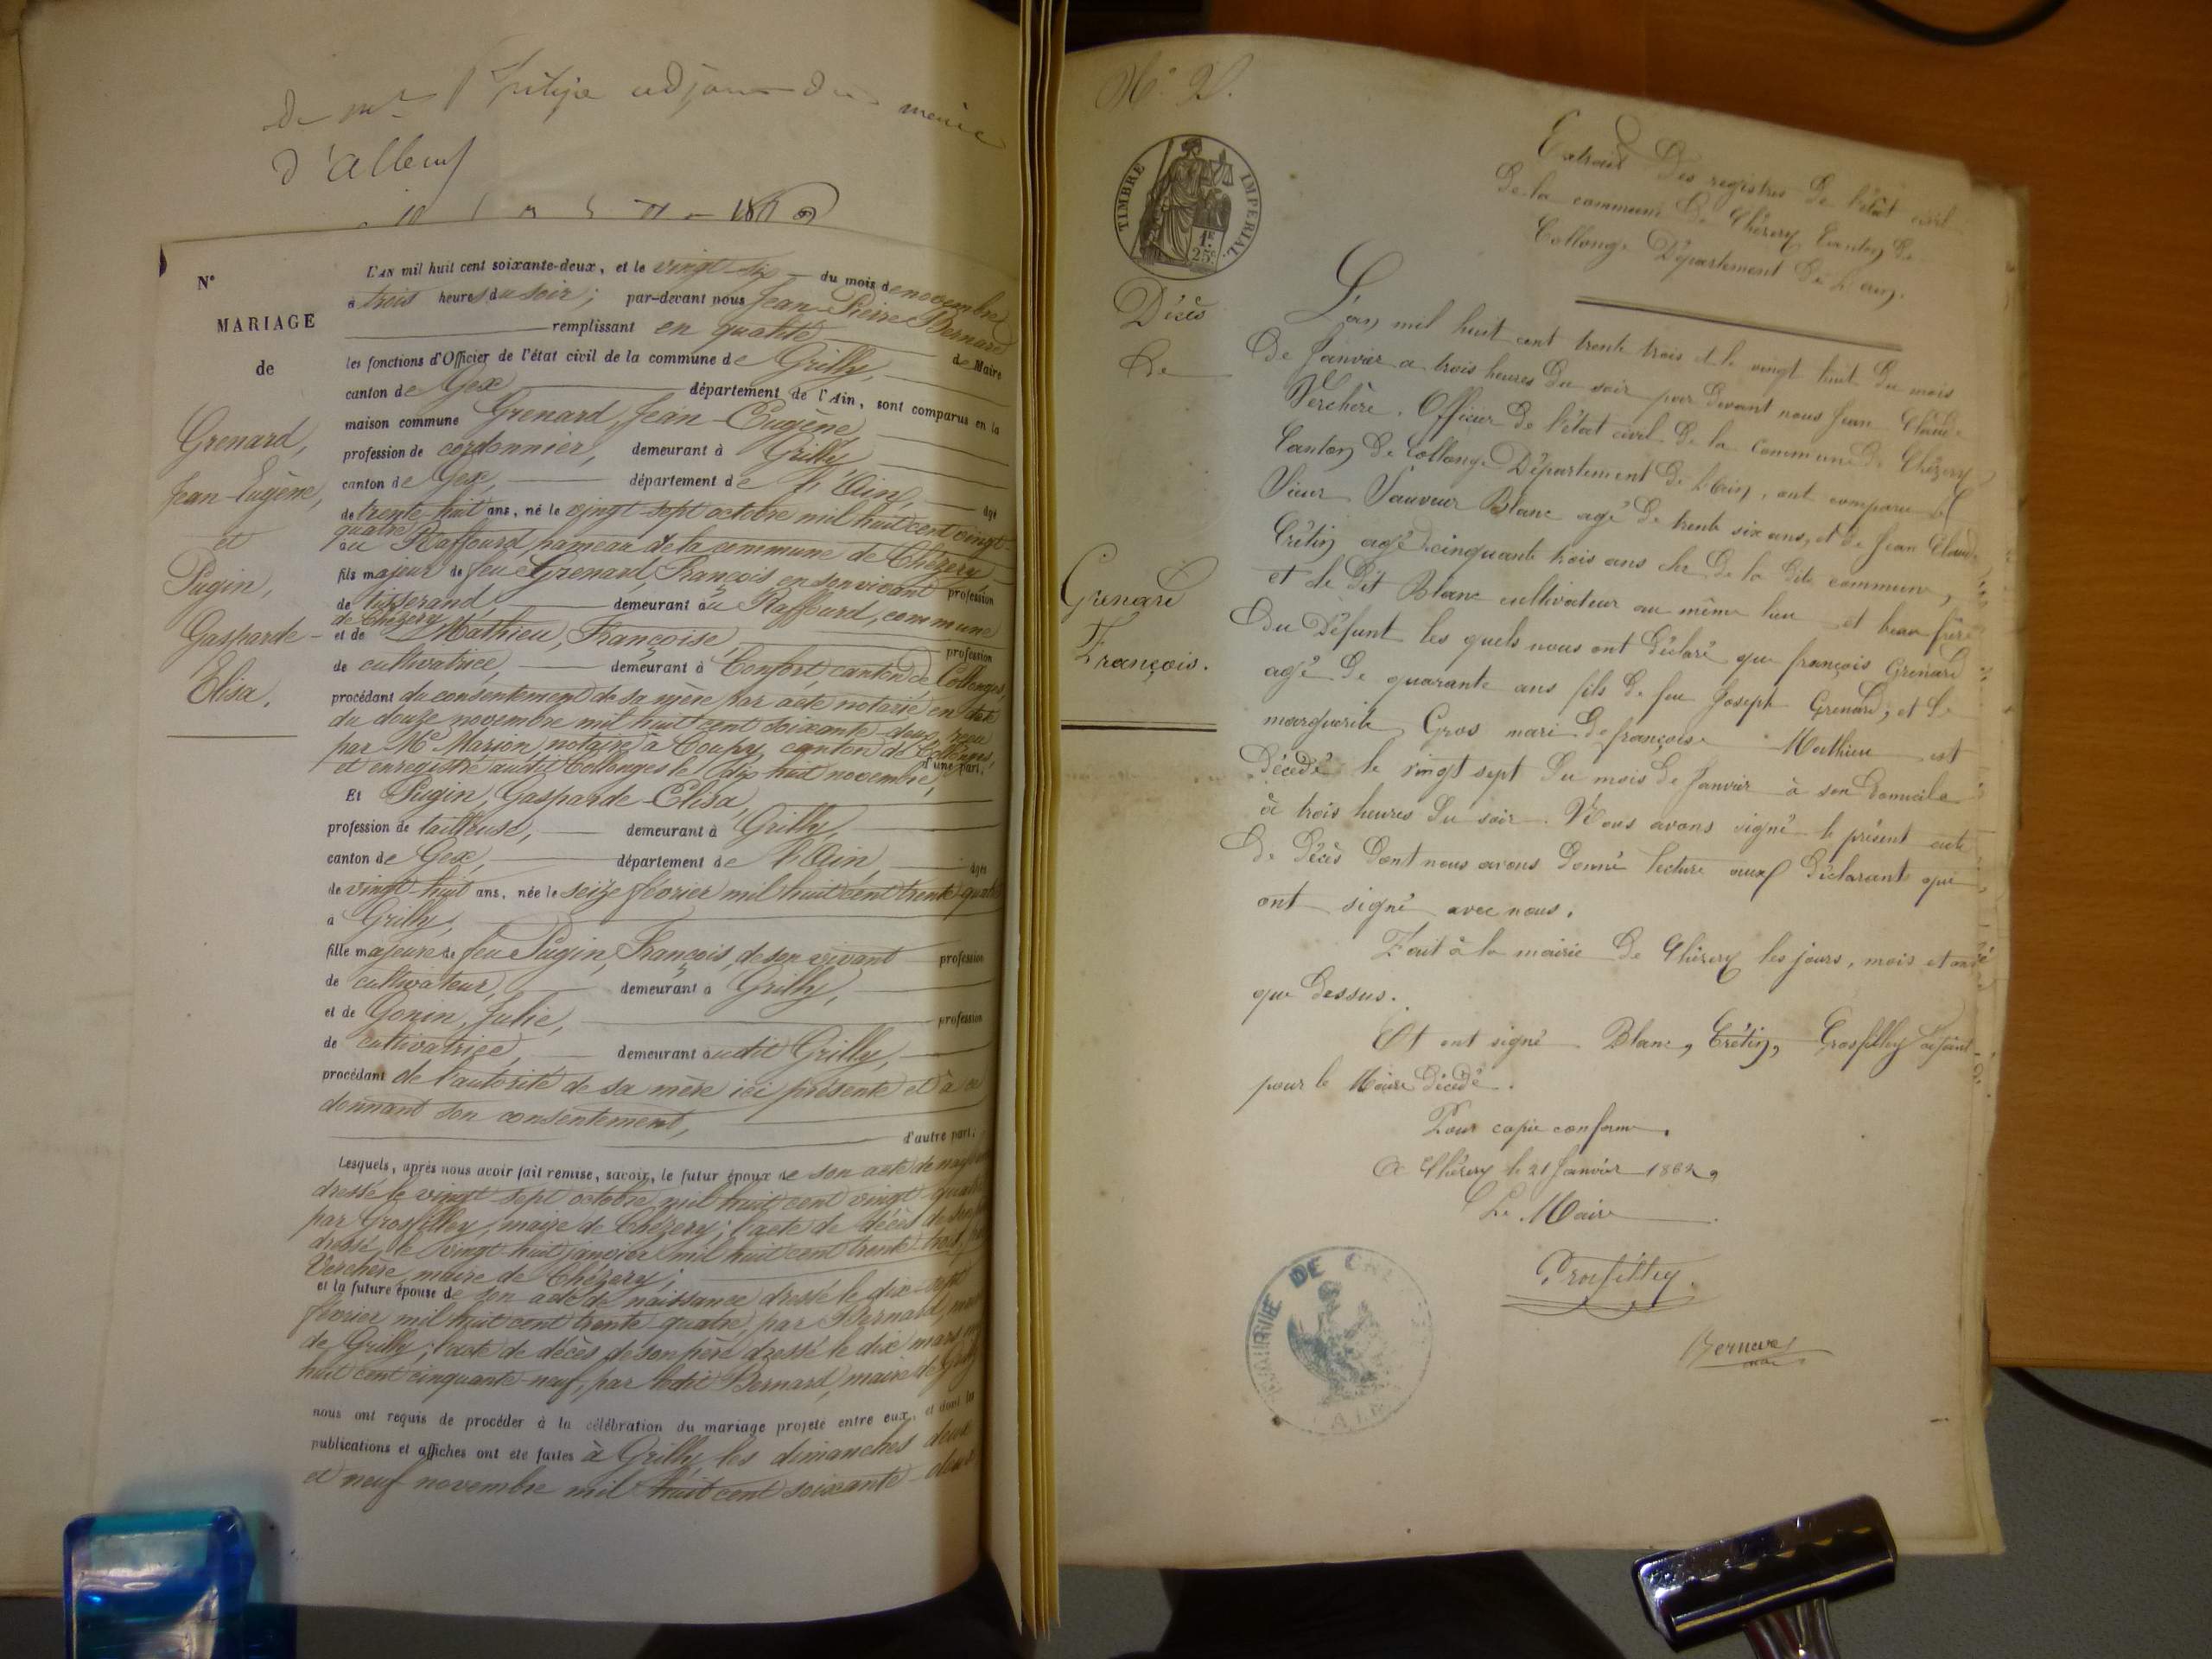 d'Allemog
N°
MARIAGE
de
Grenard,
Jean-Eugène,
et
Pugin,
Gasparde-
Elisa.
L'AN mil huit cent soixante-deux, et le vingt-six du mois de novembre
à trois heures du soir; par-devant nous Jean-Pierre Bernard
remplissant en qualité de Maire
les fonctions d'Officier de l'état civil de la commune de Grilly,
canton de Gex département de l'Ain, sont comparus en la
maison commune Grenard, Jean-Eugène
profession de cordonnier, demeurant à Grilly
canton de Gex, département de l'Ain, âgé
de trente-huit ans, né le vingt-sept octobre mil huit cent vingt-
quatre
au Raffourd, hameau de la commune de Chézery
fils majeur de feu Grenard, François en son vivant profession
de tisserand, demeurant au Raffourd, commune
de Chézery
et de Mathieu, Françoise, profession
de cultivatrice, demeurant à Confort, canton de Collonges,
procédant du consentement de sa mère par acte notarié en date
du douze novembre mil huit cent soixante-deux, reçu
par Me Marion notaire à Coupy, canton de Collonges,
et enregistré audit Collonges le dix huit novembre, d'une part.
Et Pugin, Gasparde-Elisa,
profession de tailleuse, demeurant à Grilly,
canton de Gex, département de l'Ain, âgée
de vingt-huit ans, née le seize février mil huit cent trente-quatre
à Grilly,
fille majeure de feu Pugin, François, de son vivant profession
de cultivateur, demeurant à Grilly,
et de Gonin, Julie, profession
de cultivatrice, demeurant audit Grilly,
procédant de l'autorité de sa mère ici présente et à ce
donnant son consentement,
d'autre part;
Lesquels, après nous avoir fait remise, savoir, le futur époux de son acte de
dressé le vingt sept octobre mil huit cent vingt quatre
par Grosfilley, maire de Chézery; l'acte de décès de son
dressé le vingt-huit janvier mil huit cent trente-trois, par
Verchère, maire de Chézery;
et la future épouse de son acte de naissance dressé le dix-sept
février mil huit cent trente-quatre, par Bernard, maire
de Grilly; l'acte de décès de son père dressé le dix mars
huit cent cinquante-neuf, par ledit Bernard, maire de Grilly
nous ont requis de procéder à la célébration du mariage projeté entre eux, et dont les
publications et affiches ont été faites à Grilly, les dimanches deux
et neuf novembre mil huit cent soixante-deux
N° 2.
TIMBRE IMPÉRIAL
1F.
25c.
Décès
de
Grenard
François.
Extrait des registres de l'état civil
de la commune de Chézery Canton de
Collonge Département de L'ain.
L'an mil huit cent trente trois et le vingt huit du mois
de Janvier a trois heures du soir par devant nous Jean Claude
Verchère. Officier de l'état civil de la commune de Chézery
Canton de Collonge Département de l'Ain, ont comparu le
Sieur Sauveur Blanc agé de trente six ans, et de Jean Claude
Crétin agé de cinquante trois ans de la dite commune,
et le dit Blanc cultivateur au même lieu et beau frère
du défunt les quels nous ont déclaré que françois Grenard
agé de quarante ans fils de feu Joseph Grenard, et de
marguerite Gros mari de françoise Mathieu est
décédé le vingt sept du mois de Janvier à son domicile
à trois heures du soir. Nous avons signé le présent acte
de décès dont nous avons donné lecture aux déclarants qui
ont signé avec nous.
Fait à la mairie de Chézery les jours, mois et an
que dessus.
Et ont signé Blanc, Crétin, Grosfilley adjoint
pour le Maire décédé.
Pour copie conforme.
A Chézery le 21 Janvier 1862,
Le Maire
Grosfilley
Bernard
maire
MAIRIE DE
AIN